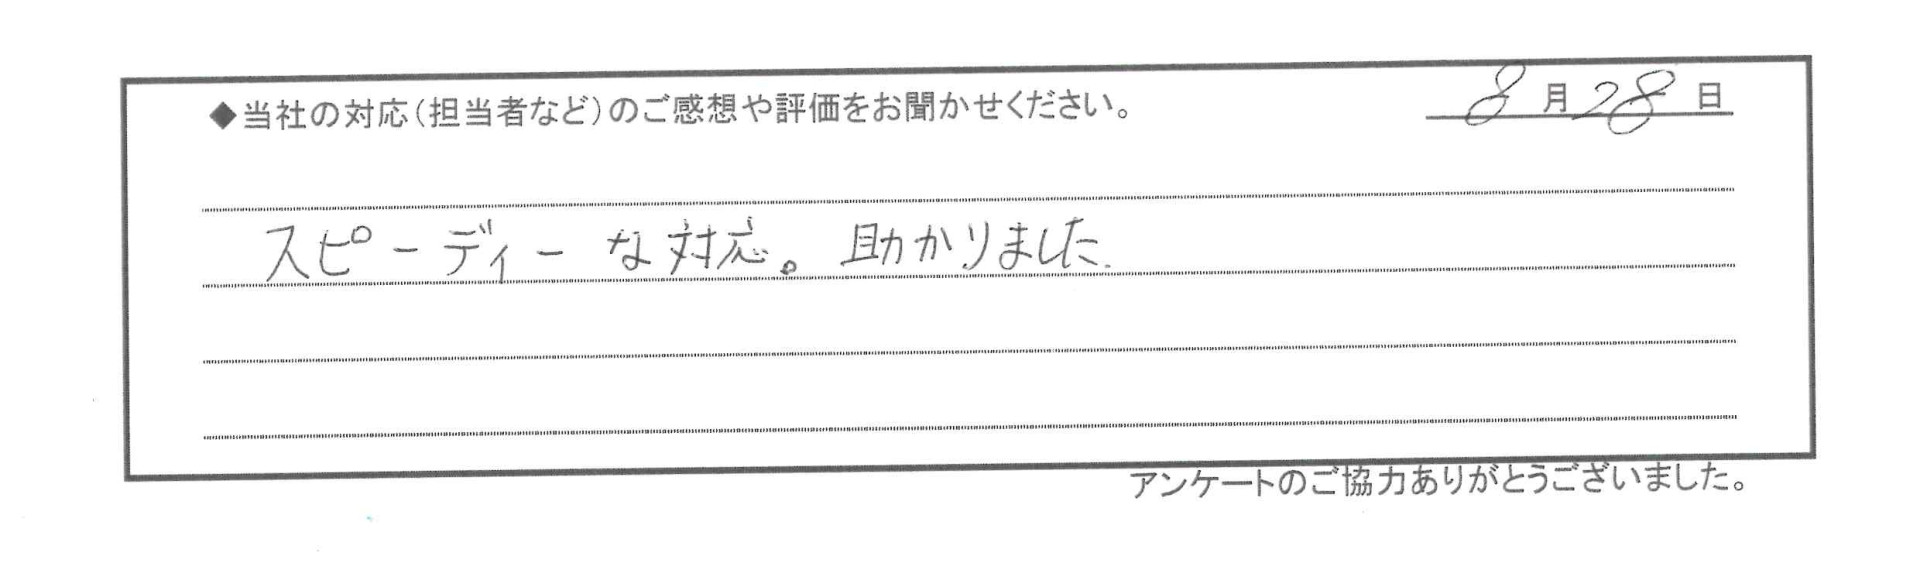 ◆当社の対応（担当者など）のご感想や評価をお聞かせください。 8月28日
スピーディーな対応。助かりました.
アンケートのご協力ありがとうございました。